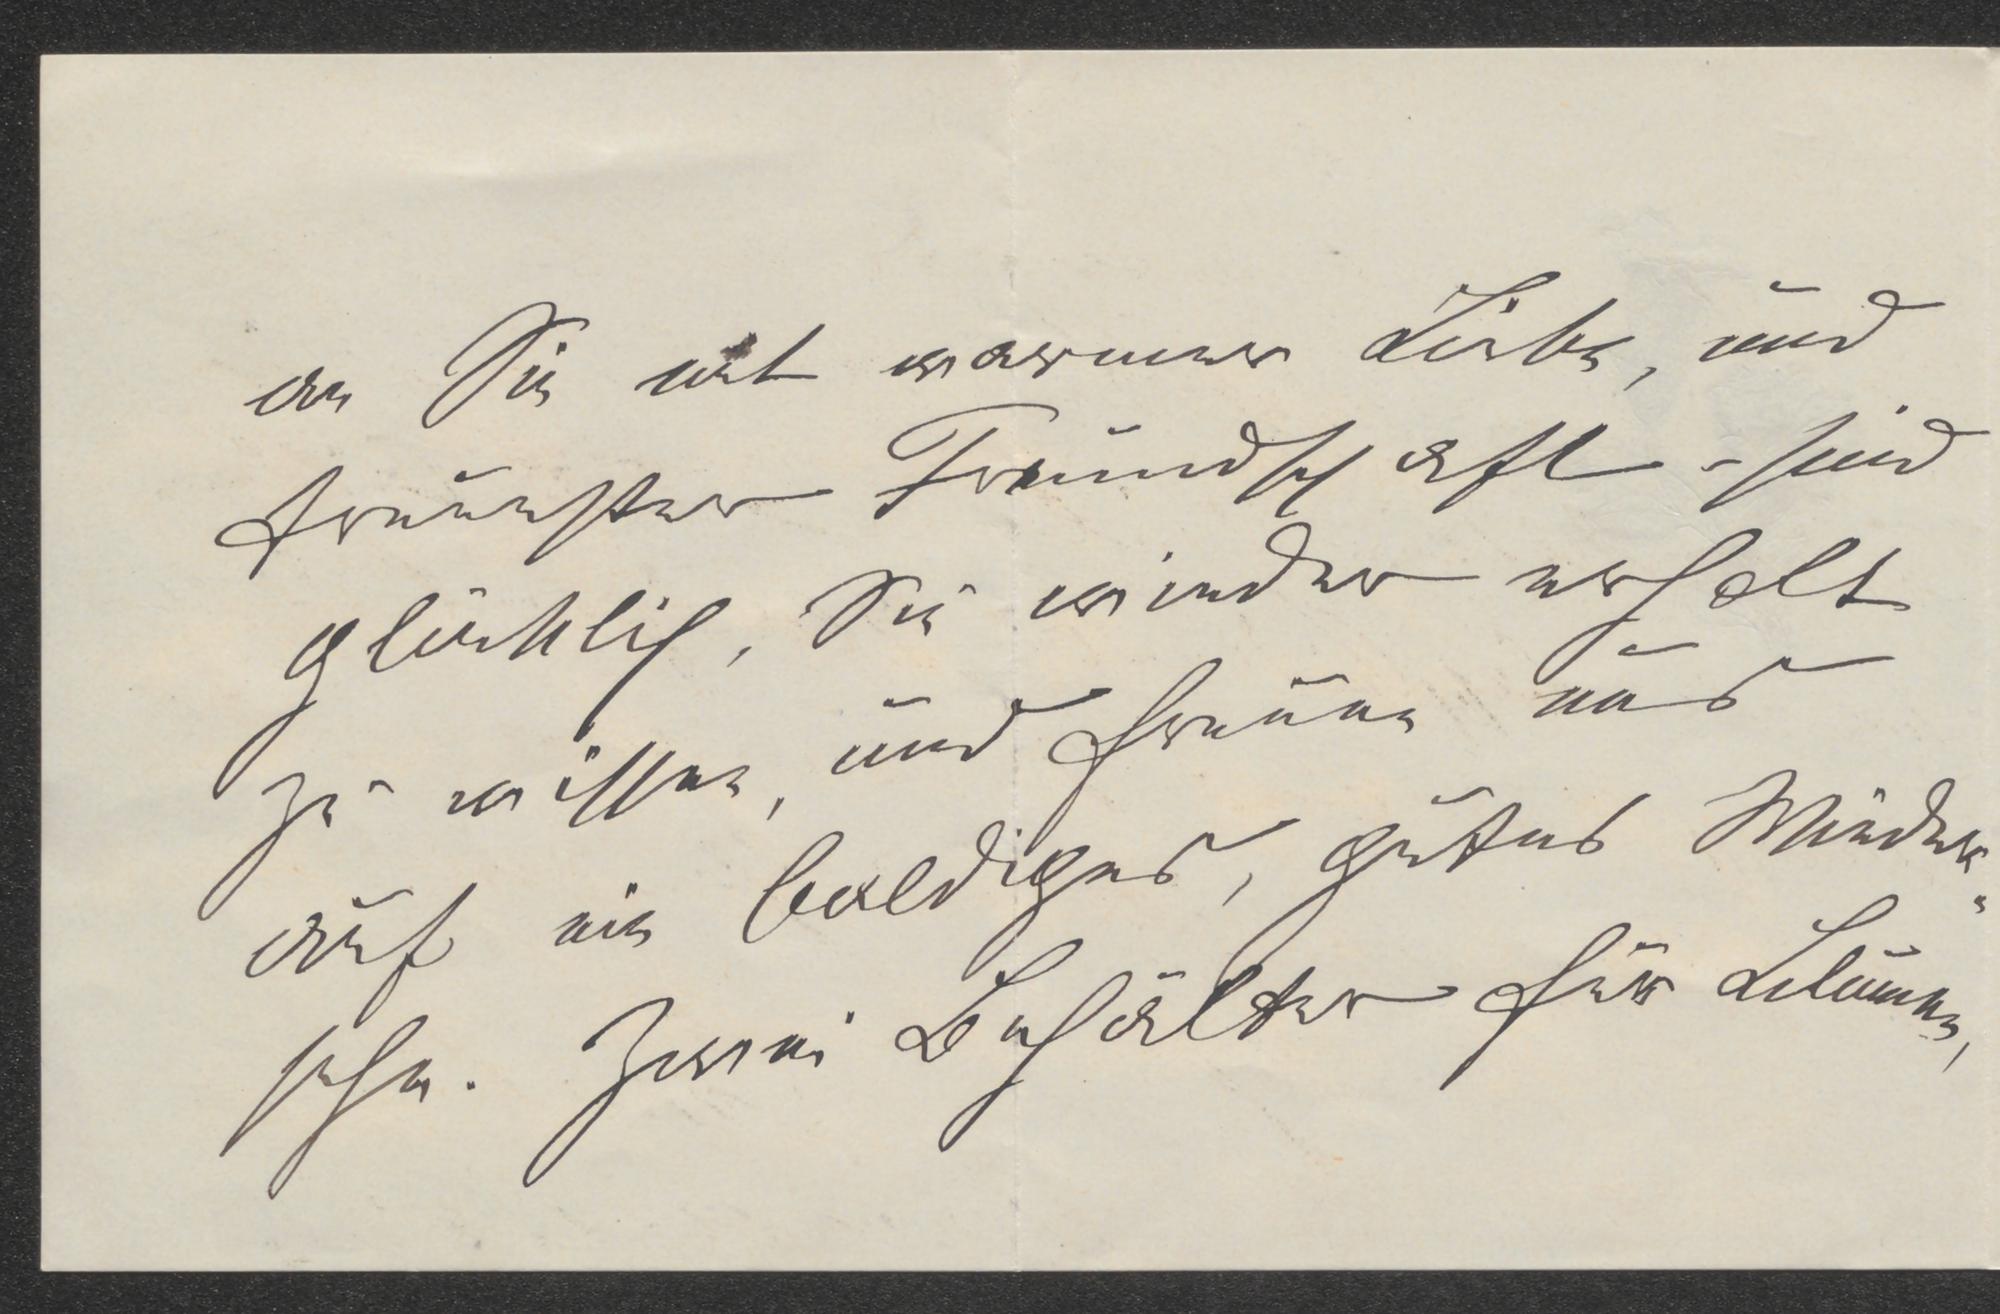 an Sie mit warmer Liebe, und
treuester Freundschaft - sind
glücklich, Sie wieder erholt
zu wissen, und freuen uns
auf ein baldiges, gutes Wieder-
sehn. Zwei Behälter für Blumen,